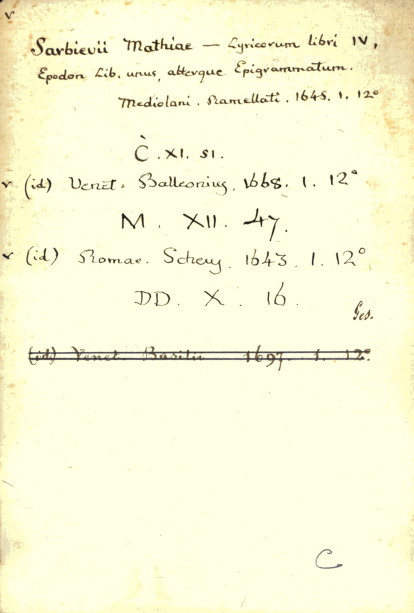 v
Sarbievii Mathiae — Lyricorum libri IV,
Epodon Lib. unus, alterque Epigrammatum.
Mediolani. Ramellati. 1645. 1. 12°
C̀. XI. 51.
v (id) Venet. Balleonius. 1668. 1. 12°
M. XII. 47.
v (id) Romae. Scheus. 1643. 1. 12°
DD. X. 16.
Ges.
(id) Venet. Basilii 1697. 1. 12°
C